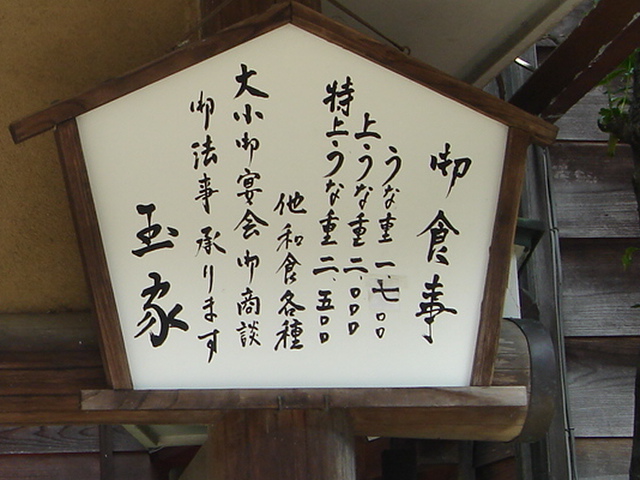 御食事
うな重 一、七〇〇
上うな重 二、〇〇〇
特上うな重 二、五〇〇
他和食各種
大小御宴会御商談
御法事 承ります
玉家